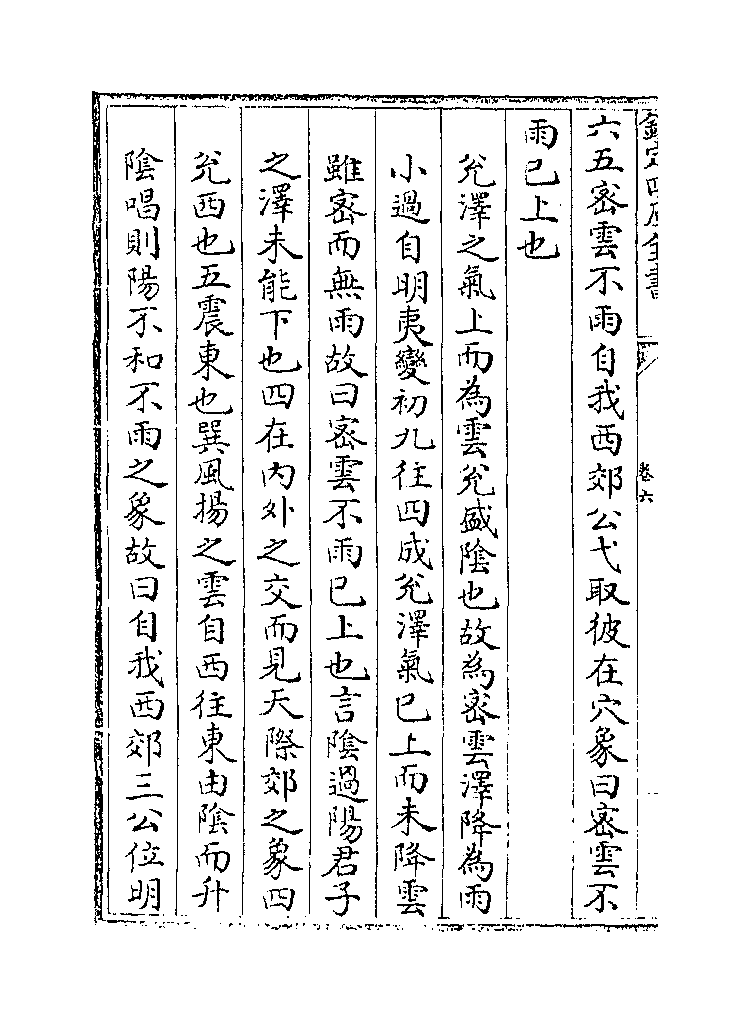 欽定四庫全書
卷六
六五密雲不雨自我西郊公弋取彼在穴象曰密雲不
雨已上也
兊澤之氣上而為雲兊盛陰也故為密雲澤降為雨
小過自明夷變初九往四成兊澤氣已上而未降雲
雖密而無雨故曰密雲不雨已上也言陰過陽君子
之澤未能下也四在内外之交而見天際郊之象四
兊西也五震東也巽風揚之雲自西往東由陰而升
陰唱則陽不和不雨之象故曰自我西郊三公位明